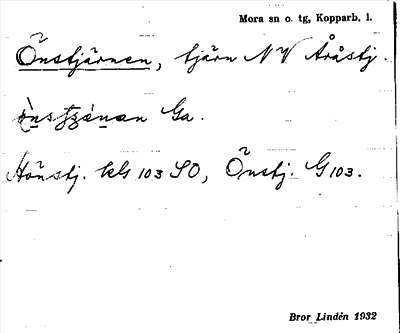 Mora sn o. tg, Kopparb. l.
Önstjärnen, tjärn NV Åråstj.
Ga.
Hönstj. kls 103 SO, Önstj. G 103.
Bror Lindén 1932